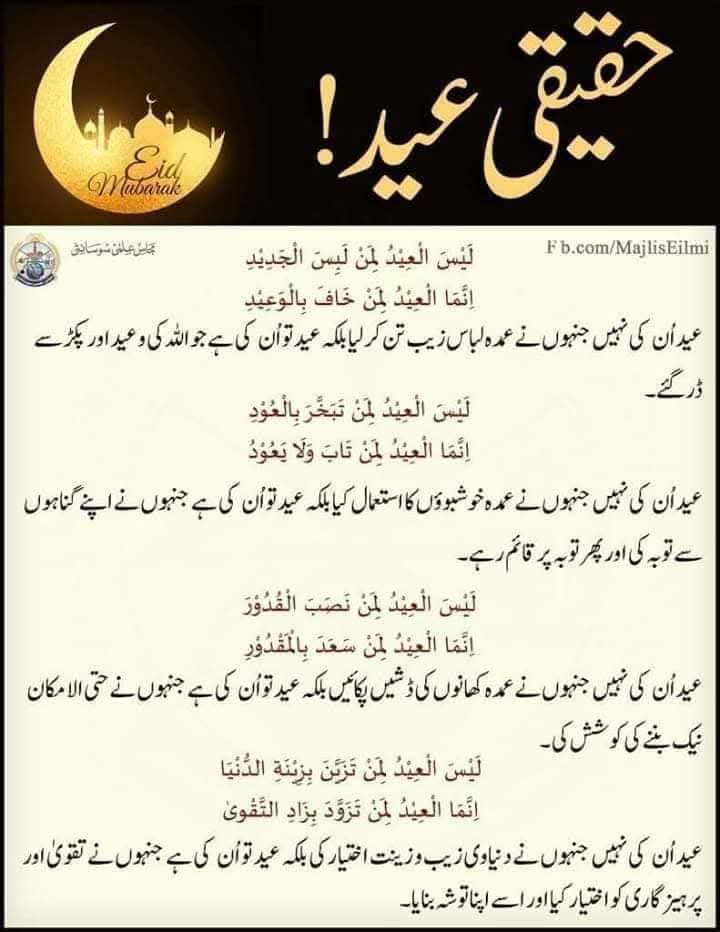 حقیقی عید!
Eid
Mubarak
Fb.com/MajlisEilmi
لَیْسَ الْعِیْدُ لِمَنْ لَبِسَ الْجَدِیْدِ
اِنَّمَا الْعِیْدُ لِمَنْ خَافَ بِالْوَعِیْدِ
عید اُن کی نہیں جنہوں نے عمدہ لباس زیب تن کر لیا بلکہ عید تو اُن کی ہے جو اللہ کی وعید اور پکڑ سے
ڈر گئے۔
لَیْسَ الْعِیْدُ لِمَنْ تَبَخَّرَ بِالْعُوْدِ
اِنَّمَا الْعِیْدُ لِمَنْ تَابَ وَلَا یَعُوْدُ
عید اُن کی نہیں جنہوں نے عمدہ خوشبوؤں کا استعمال کیا بلکہ عید تو اُن کی ہے جنہوں نے اپنے گناہوں
سے توبہ کی اور پھر توبہ پر قائم رہے۔
لَیْسَ الْعِیْدُ لِمَنْ نَصَبَ الْقُدُوْرَ
اِنَّمَا الْعِیْدُ لِمَنْ سَعَدَ بِالْمَقْدُوْرِ
عید اُن کی نہیں جنہوں نے عمدہ کھانوں کی ڈشیں پکائیں بلکہ عید تو اُن کی ہے جنہوں نے حتی الامکان
نیک بننے کی کوشش کی۔
لَیْسَ الْعِیْدُ لِمَنْ تَزَیَّنَ بِزِیْنَةِ الدُّنْیَا
اِنَّمَا الْعِیْدُ لِمَنْ تَزَوَّدَ بِزَادِ التَّقْویٰ
عید اُن کی نہیں جنہوں نے دنیاوی زیب و زینت اختیار کی بلکہ عید تو اُن کی ہے جنہوں نے تقویٰ اور
پرہیز گاری کو اختیار کیا اور اسے اپنا توشہ بنایا۔